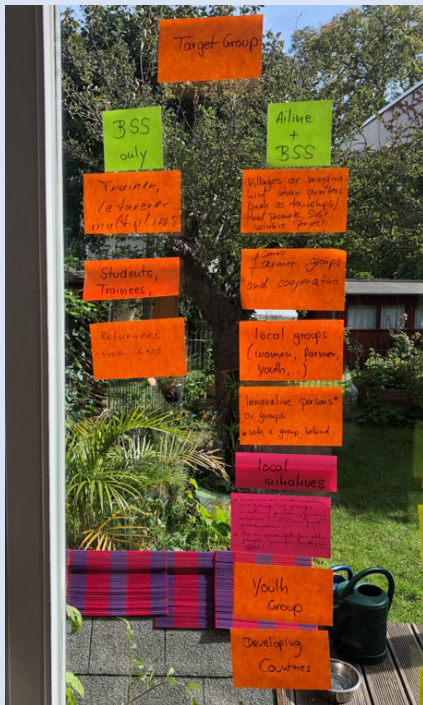 Target Group
BSS
only
Trainer,
lecturerer
multipliers
Students,
Trainees,
Returnees
from
Ailine
+
BSS
Villages or margina-
lized urban quarters
(such as townships)
that promote sust.
inclusive
small
Farmer groups
and cooperatives
local groups
(women, farmer,
youth, )
Innovative persons*
or groups
* with a group behind
local
initiatives
Youth
Group
Developing
Countries